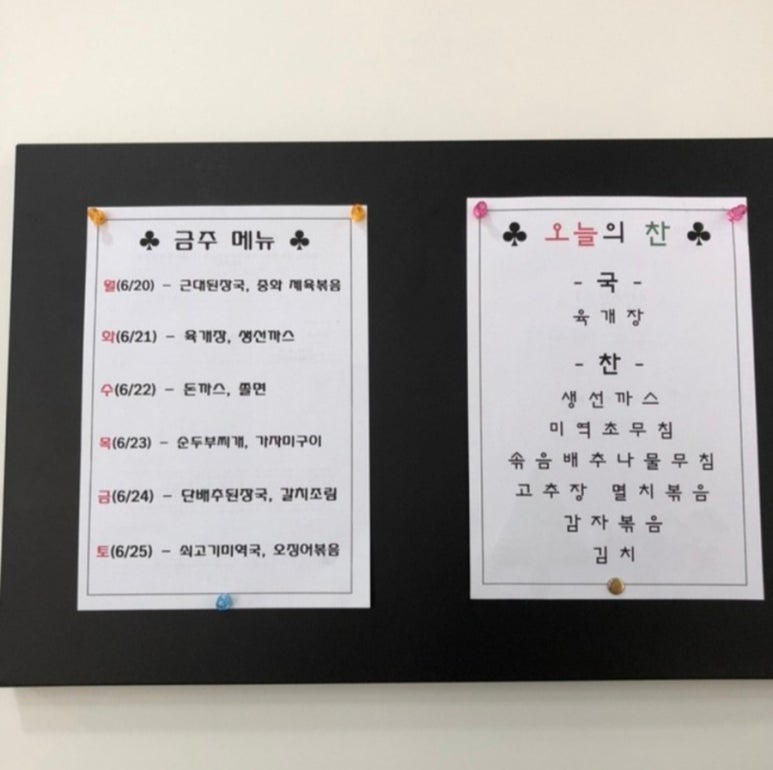 ♣ 금주 메뉴 ♣
월(6/20) – 근대된장국, 중화 제육볶음
화(6/21) – 육개장, 생선까스
수(6/22) – 돈까스, 쫄면
목(6/23) – 순두부찌개, 가자미구이
금(6/24) – 단배추된장국, 갈치조림
토(6/25) – 쇠고기미역국, 오징어볶음
♣ 오늘의 찬 ♣
- 국 -
육개장
- 찬 -
생선까스
미역초무침
솎음배추나물무침
고추장 멸치볶음
감자볶음
김치